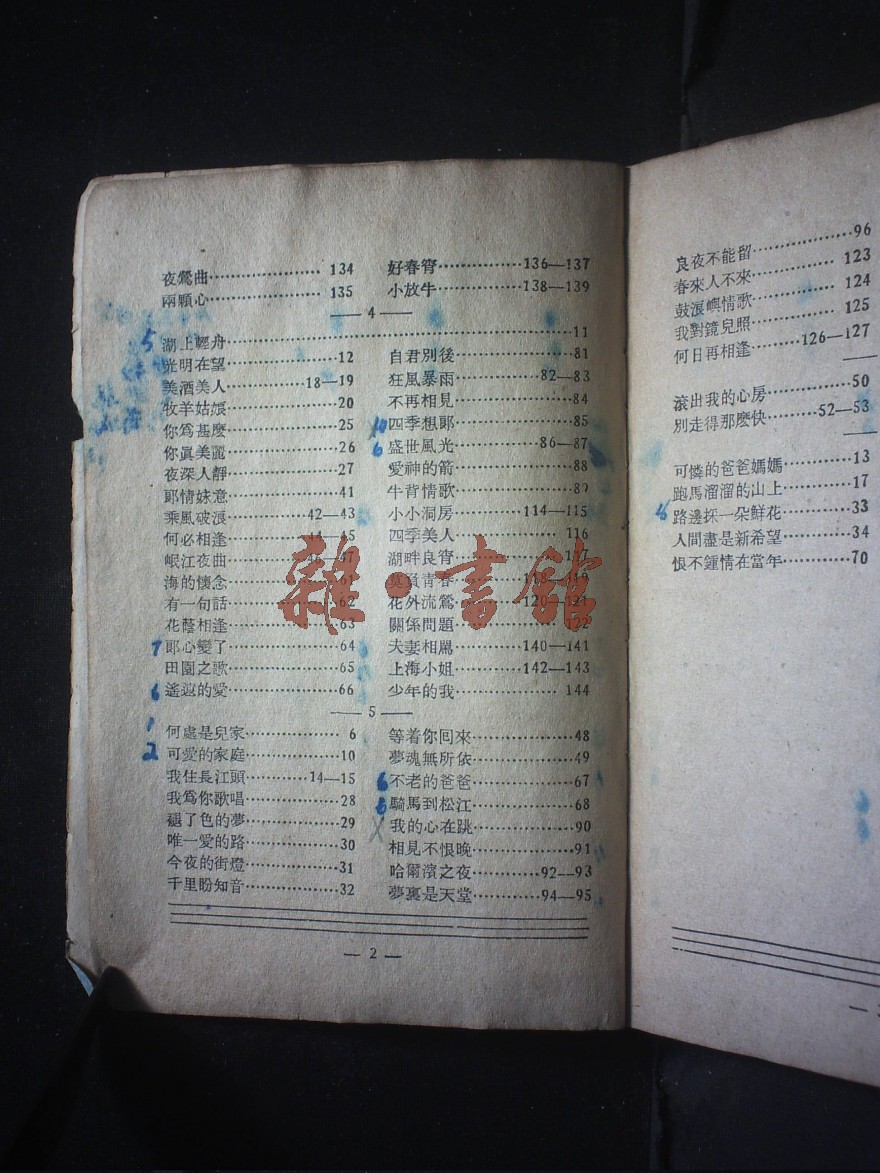 夜鶯曲………………134
兩顆心………………135
好春宵………………136—137
小放牛………………138—139
—— 4 ——
湖上輕舟………………11
光明在望………………12
美酒美人………………18—19
牧羊姑娘………………20
你爲甚麽………………25
你眞美麗………………26
夜深人靜………………27
郞情妹意………………41
乘風破浪………………42—43
何必相逢………………44—45
岷江夜曲………………46—47
海的懷念………………61
有一句話………………62
花蔭相逢………………63
郞心變了………………64
田園之歌………………65
遙遠的愛………………66
自君別後………………81
狂風暴雨………………82—83
不再相見………………84
四季想郞………………85
盛世風光………………86—87
愛神的箭………………88
牛背情歌………………89
小小洞房………………114—115
四季美人………………116
湖畔良宵………………117
莫負靑春………………118—119
花外流鶯………………120—121
關係問題………………122
夫妻相罵………………140—141
上海小姐………………142—143
少年的我………………144
—— 5 ——
何處是兒家………………6
可愛的家庭………………10
我住長江頭………………14—15
我爲你歌唱………………28
褪了色的夢………………29
唯一愛的路………………30
今夜的街燈………………31
千里盼知音………………32
等着你回來………………48
夢魂無所依………………49
不老的爸爸………………67
騎馬到松江………………68
我的心在跳………………90
相見不恨晚………………91
哈爾濱之夜………………92—93
夢裏是天堂………………94—95
— 2 —
良夜不能留………………96
春來人不來………………123
鼓浪嶼情歌………………124
我對鏡兒照………………125
何日再相逢………………126—127
滾出我的心房………………50
別走得那麽快………………52—53
可憐的爸爸媽媽………………13
跑馬溜溜的山上………………17
路邊採一朵鮮花………………33
人間盡是新希望………………34
恨不鍾情在當年………………70
雜·書館
5
7
6
1
2
10
6
6